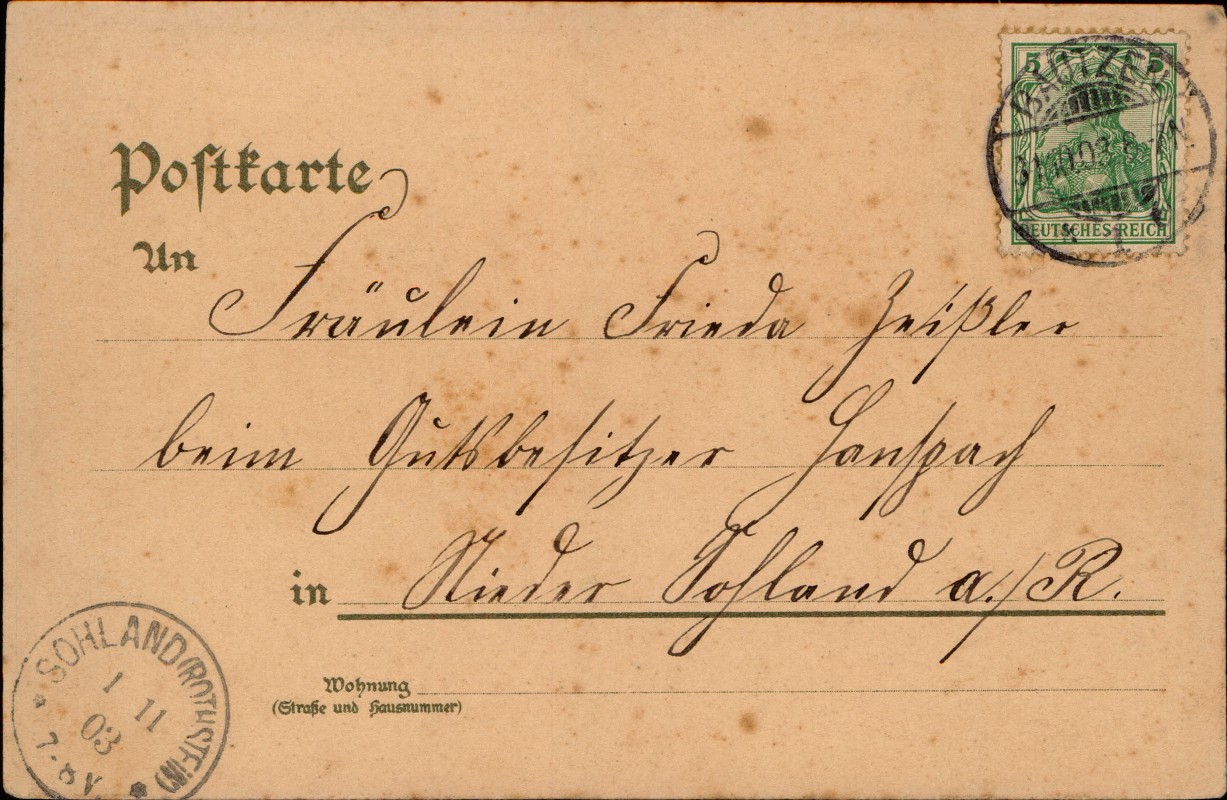 Postkarte
5 5
BAUTZEN
31.10.03. 6-7N.
* 1 *
DEUTSCHES REICH
An
Fräulein Frieda Zeißler
beim Gutsbesitzer Hanspach
in Nieder Sohland a./R.
Wohnung
(Straße und Hausnummer)
* SOHLAND (ROTHSTEIN) *
1 11
03
7-8V